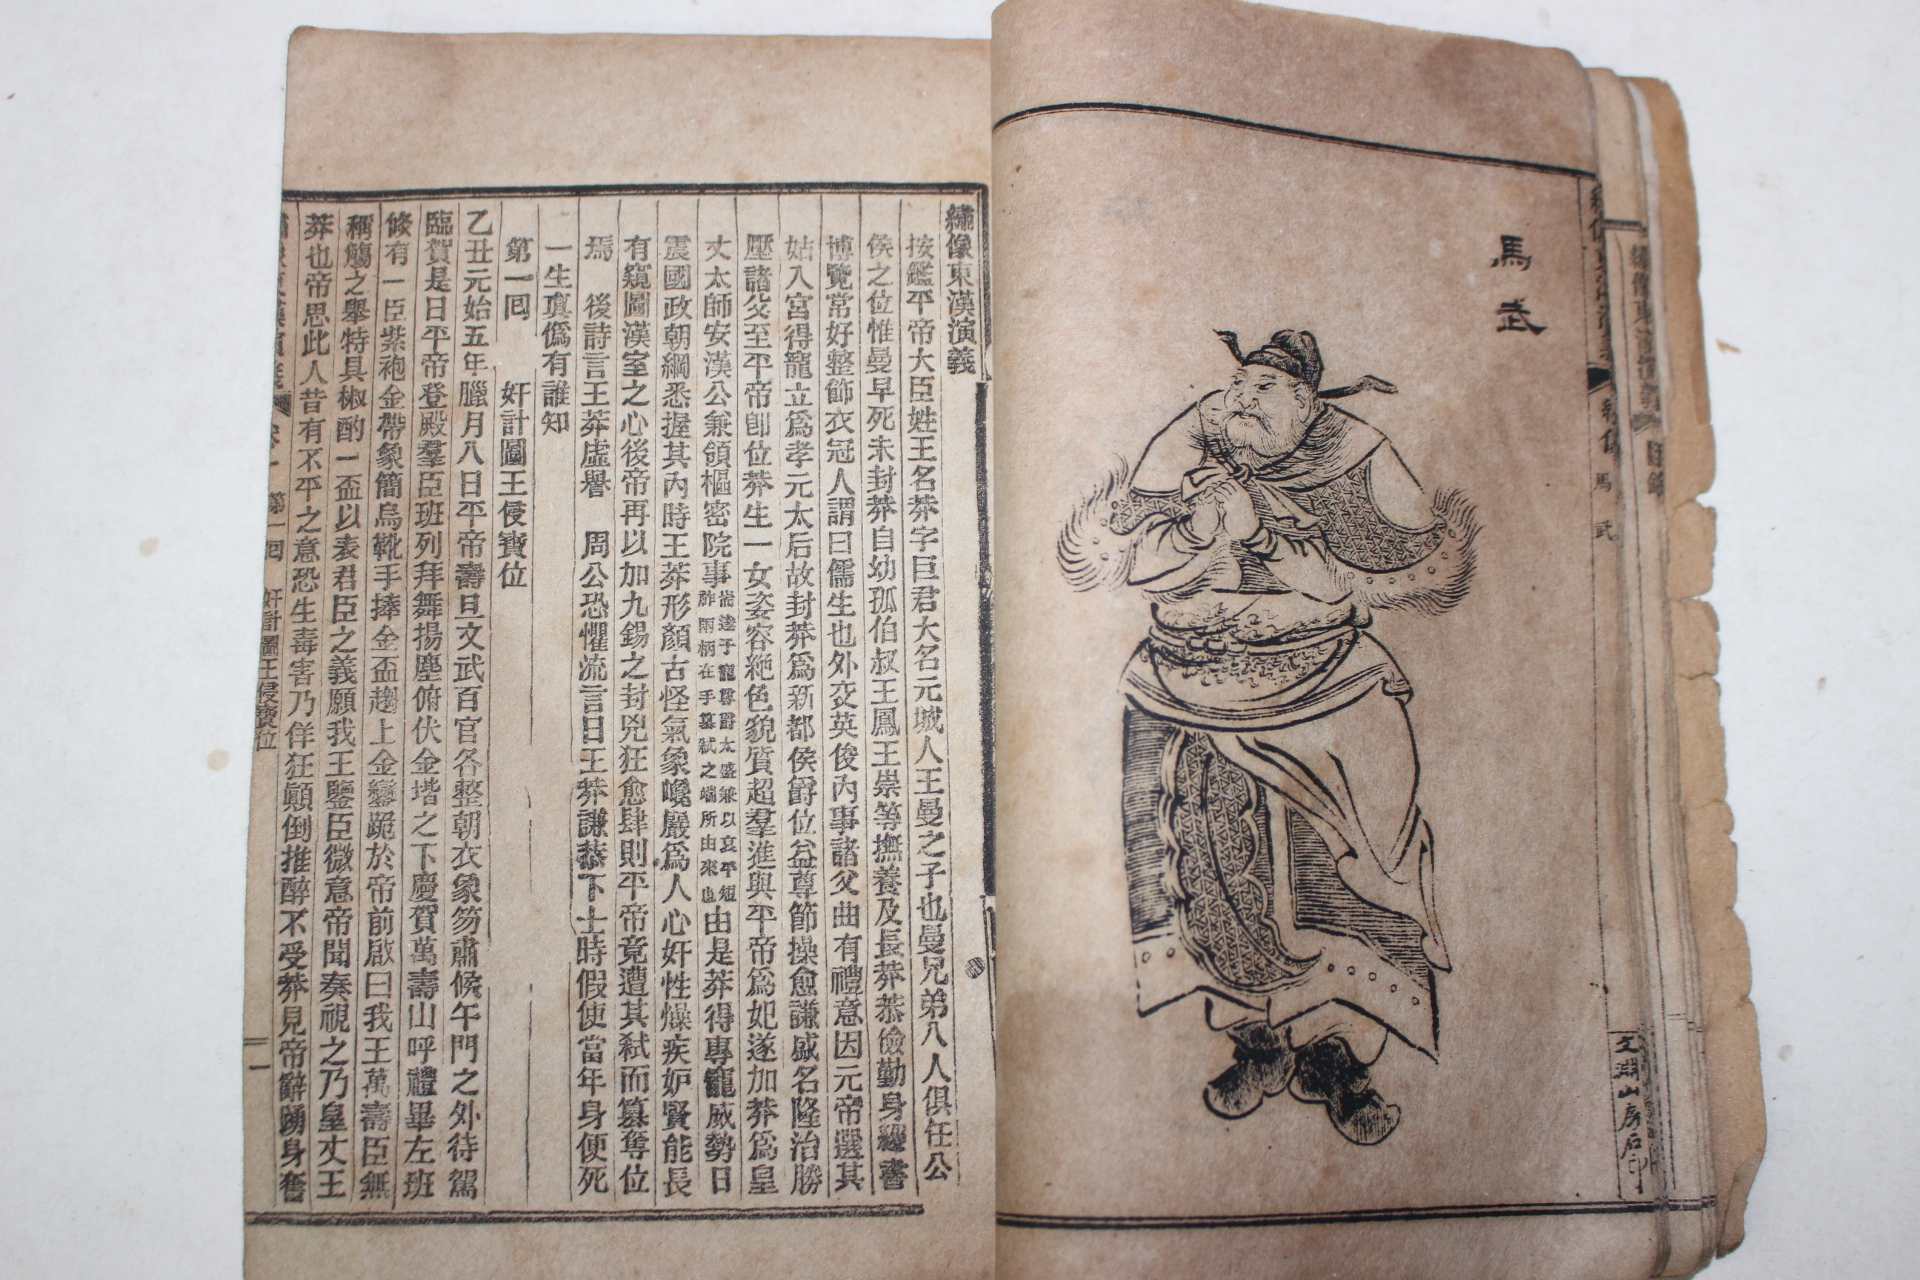 馬武
馬武
文淵山房石印
繡像東漢演義
按鑑平帝大臣姓王名莽字巨君大名元城人王曼之子也曼兄弟八人俱任公
侯之位惟曼早死未封莽自幼孤伯叔王鳳王崇等撫養及長莽恭儉勤身
博覽常好整節衣冠人謂曰儒生也外交英俊內事諸父曲有禮意因元帝選其
姑入宮得寵立爲孝元太后故封莽爲新都侯爵位益尊節操愈謙威名隆治勝
壓諸父至平帝卽位莽生一女姿容絶色貌質超羣進與平帝爲妃遂加莽爲皇
丈太師安漢公兼領樞密院事
由是莽得專寵威勢日
震國政朝綱悉握其內時王莽形顏古怪氣象巉嚴爲人心奸性燥疾妒賢能長
有窺圖漢室之心後帝再以加九錫之封兇狂愈肆則平帝竟遭其弑而篡奪位
焉 後詩言王莽虛譽 周公恐懼流言日王莽謙恭下士時假使當年身便死
一生真僞有誰知
第一囘 奸計圖王侵寶位
乙丑元始五年臘月八日平帝壽旦文武百官各整朝衣象笏肅候午門之外待駕
臨賀是日平帝登殿羣臣班列拜舞揚塵俯伏金堦之下慶賀萬壽山呼禮畢左班
倏有一臣紫袍金帶象簡烏靴手捧金盃趨上金鑾跪於帝前啟曰我王萬壽臣無
稱觴之舉特具椒酌一盃以表君臣之義願我王鑒臣微意帝聞奏視之乃皇丈王
莽也帝思此人昔有不平之意恐生毒害乃佯狂顚倒推醉不受莽見帝辭踴身奮
第一囘 奸計圖王侵寶位
一